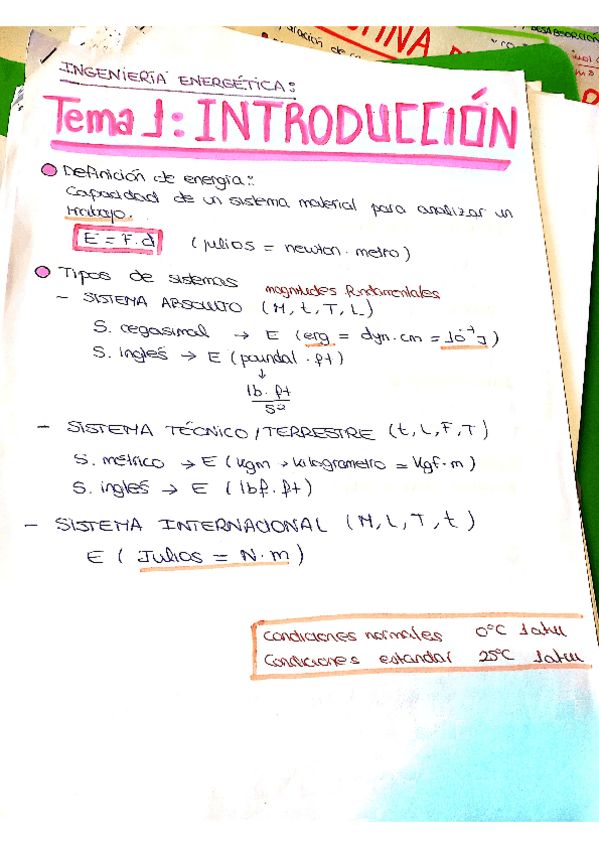 DESABSORCIÓN
INGENIERÍA ENERGÉTICA:
Tema 1: INTRODUCCIÓN
Definición de energía::
Capacidad de un sistema material para analizar un
trabajo.
E = F.d (julios = newton . metro)
Tipos de sistemas magnitudes fundamentales
- SISTEMA ABSOLUTO (M, t, T, L)
S. cegasimal → E (erg = dyn.cm = 10⁻⁷J)
S. inglés → E (poundal . ft)
↓
lb. ft
s²
- SISTEMA TÉCNICO/TERRESTRE (t, L, F, T)
S. métrico → E (kgm → kilogrametro = kgf.m)
S. inglés → E (lbf. ft)
- SISTEMA INTERNACIONAL (M, L, T, t)
E (Julios = N.m)
Condiciones normales 0°C 1atm
Condiciones estandar 25°C 1atm